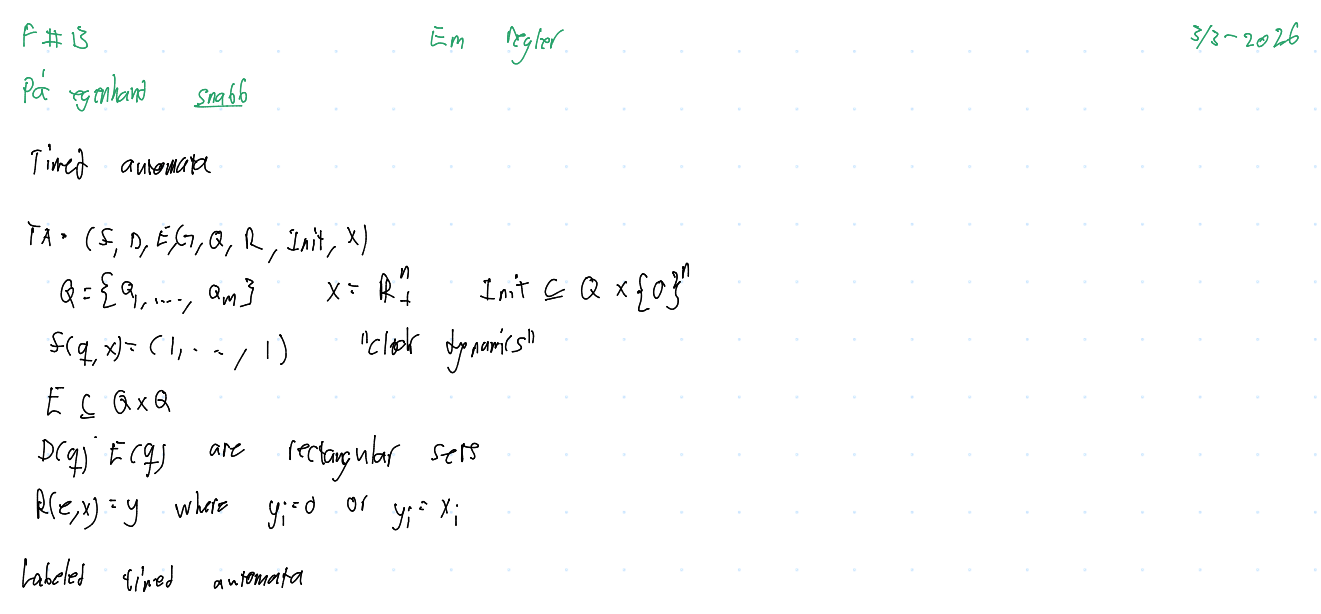 F#13 Em Regler 3/3-2026
På egenhand snabb
Timed automata
TA = (f, D, E, G, Q, R, Init, X)
Q = {q₁, ..., qₘ} X = R₊ⁿ Init ⊆ Q × {0}ⁿ
f(q, x) = (1, ..., 1) "clock dynamics"
E ⊆ Q×Q
D(q) E(q) are rectangular sets
R(e,x) = y where yᵢ=0 or yᵢ = xᵢ
Labeled timed automata